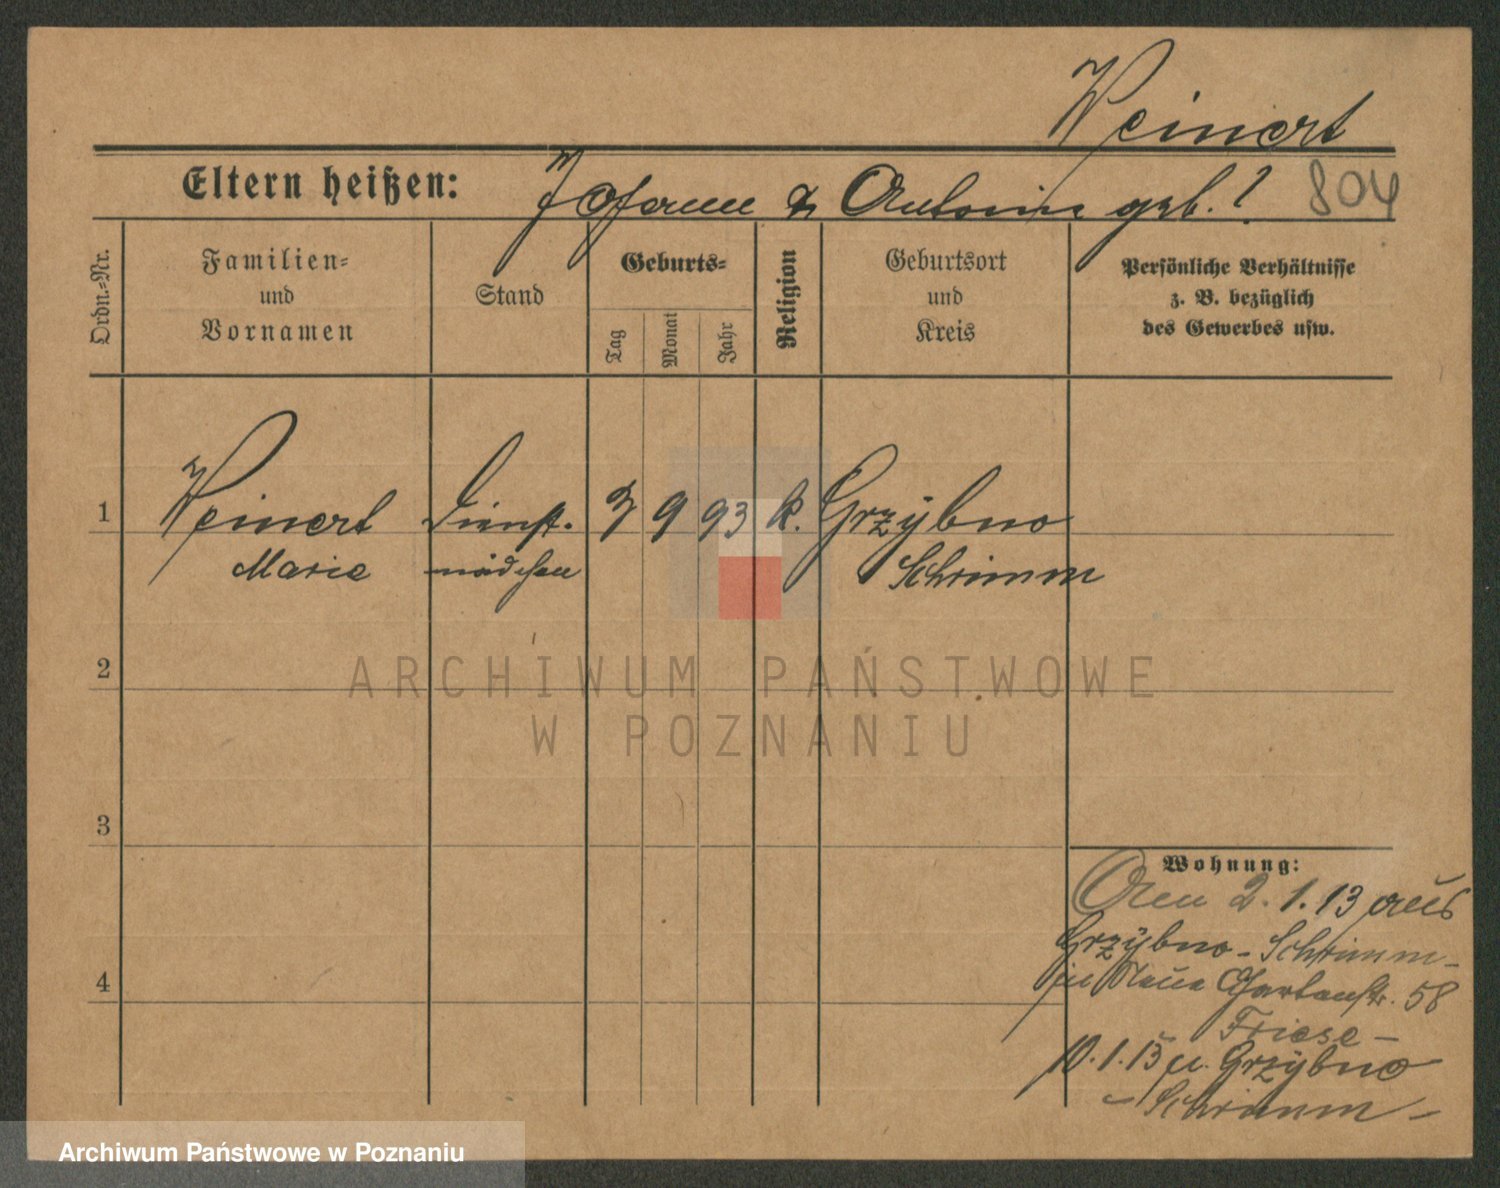 Weinert
Eltern heißen: Johann & Antonie geb. ?
804
Ordn.-Nr.
Familien-
und
Vornamen
Stand
Geburts-
Tag
Monat
Jahr
Religion
Geburtsort
und
Kreis
Persönliche Verhältnisse
z. B. bezüglich
des Gewerbes usw.
1 Weinert Dienst- 9 93 k. Grzybno
Marie mädchen Schrimm
2
ARCHIWUM PAŃSTWOWE
W POZNANIU
3
Wohnung:
Am 2.1.13 aus
Grzybno - Schrimm -
in Neue Gartenstr. 58
4
Friese -
10.1.13 n. Grzybno
- Schrimm -
Archiwum Państwowe w Poznaniu